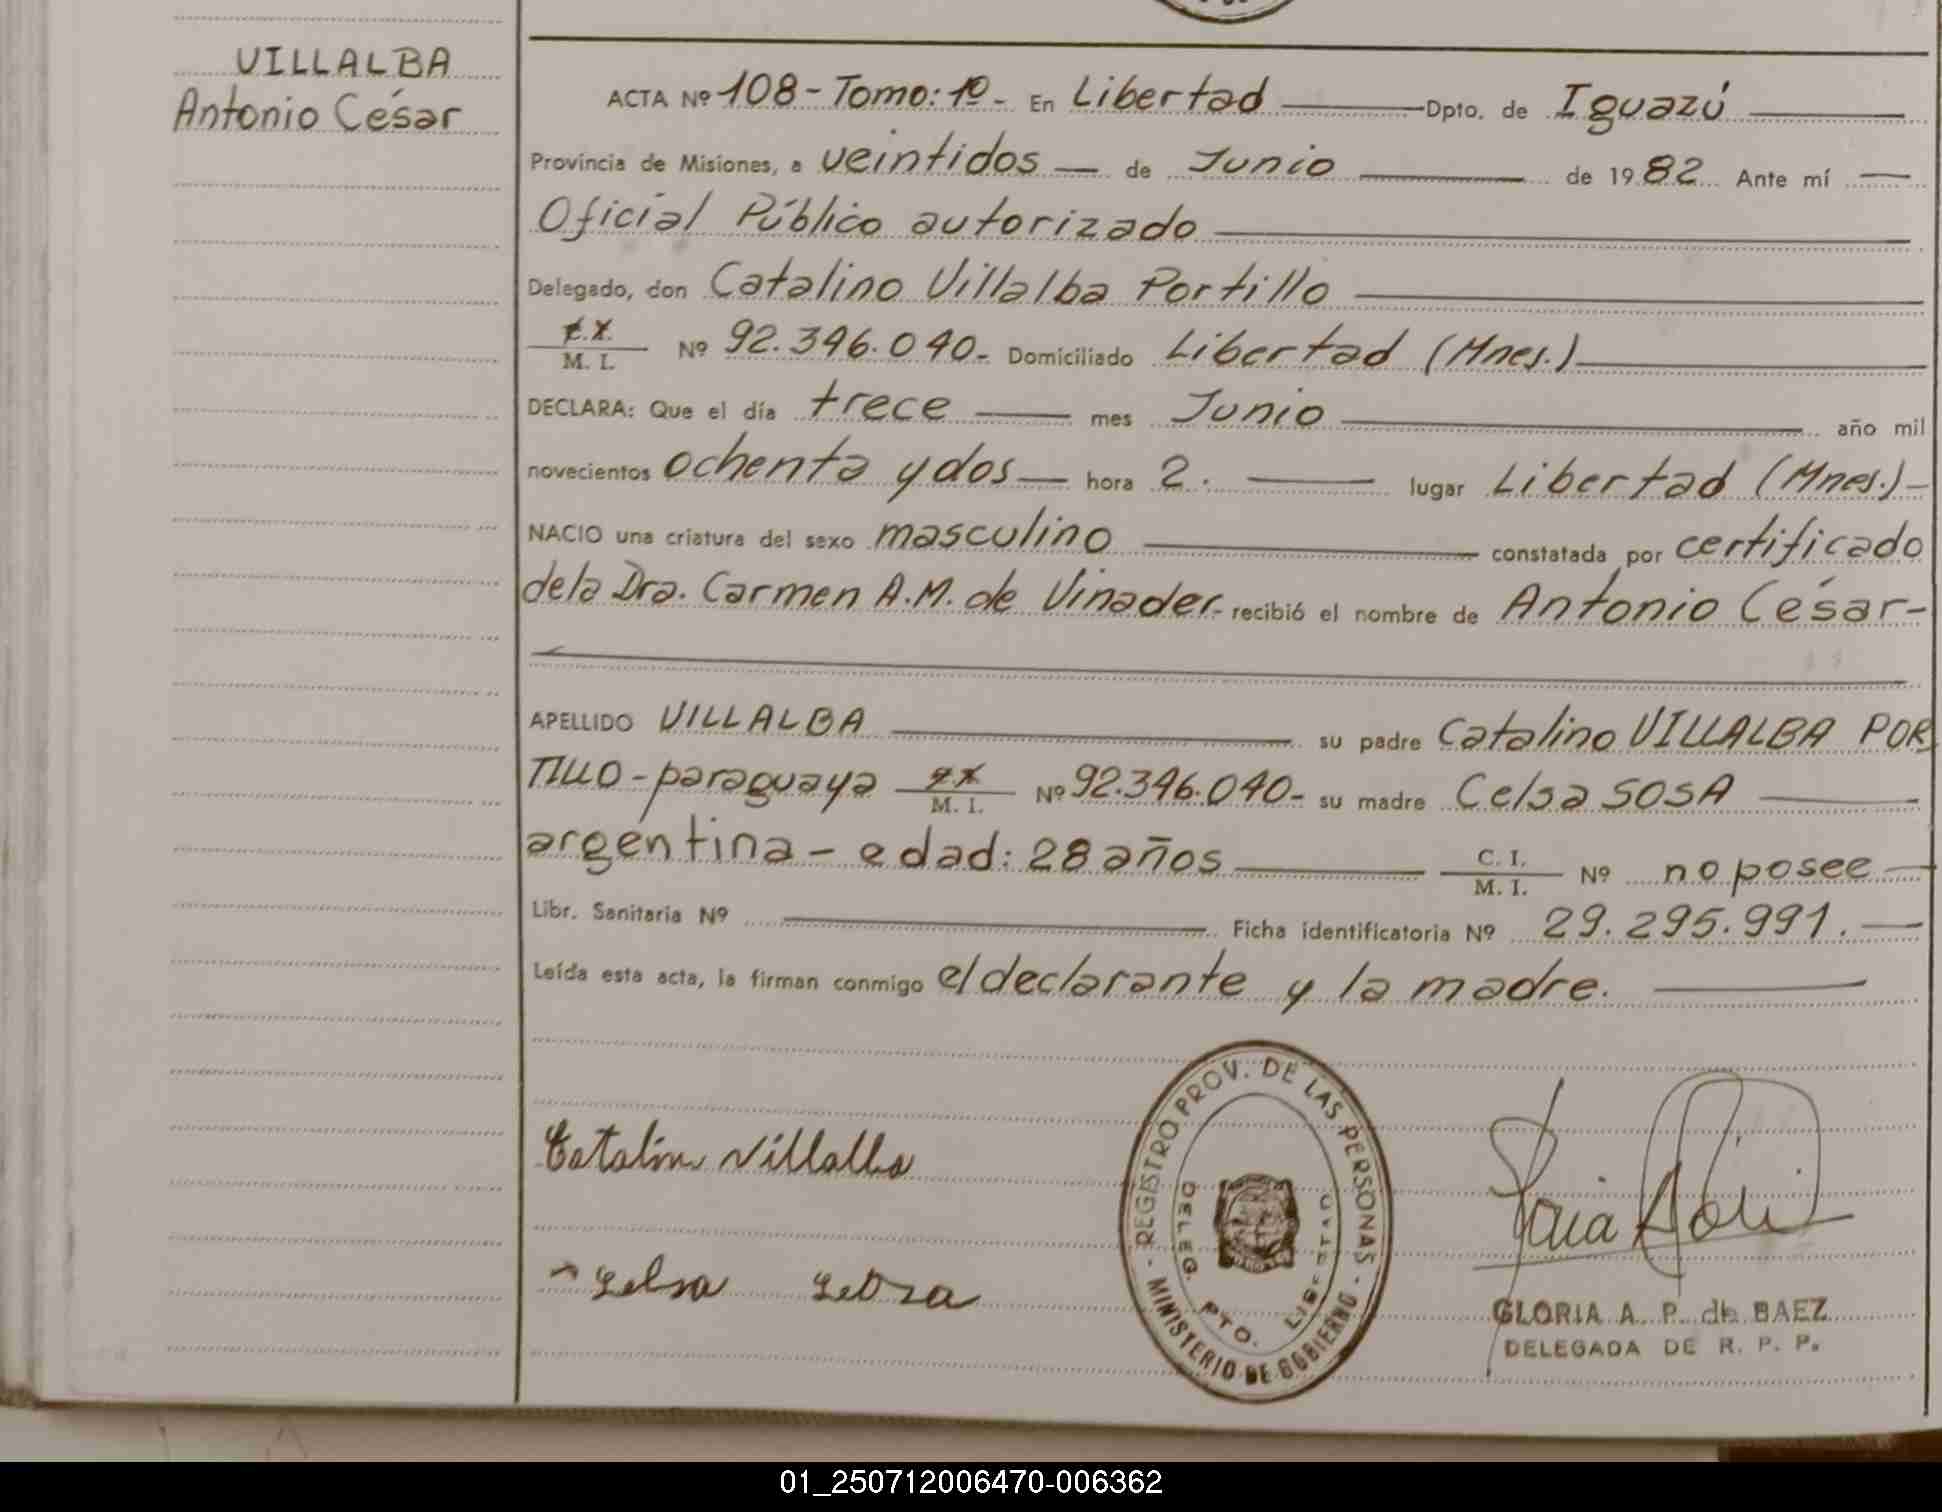 VILLALBA
Antonio César
ACTA Nº 108 - Tomo: 1º - En Libertad Dpto. de Iguazú
Provincia de Misiones, a veintidos de Junio de 1982 Ante mí
Oficial Público autorizado
Delegado, don Catalino Villalba Portillo
M. I. Nº 92.346.040- Domiciliado Libertad (Mnes.)
DECLARA: Que el día trece mes Junio año mil
novecientos ochenta y dos hora 2. lugar Libertad (Mnes.)
NACIO una criatura del sexo masculino constatada por certificado
dela Dra. Carmen A.M. de Vinader- recibió el nombre de Antonio César-
APELLIDO VILLALBA su padre Catalino VILLALBA POR
TILLO - paraguaya M. I. Nº 92.346.040- su madre Celsa SOSA
argentina - edad: 28 años C. I. M. I. Nº no posee
Libr. Sanitaria Nº Ficha identificatoria Nº 29.295.991.
Leída esta acta, la firman conmigo el declarante y la madre.
REGISTRO PROV. DE LAS PERSONAS - MINISTERIO DE GOBIERNO -
DELEG. PTO. LIBERTAD
Catalin Villalba
GLORIA A. P. de BAEZ
DELEGADA DE R. P. P.
01_250712006470-006362